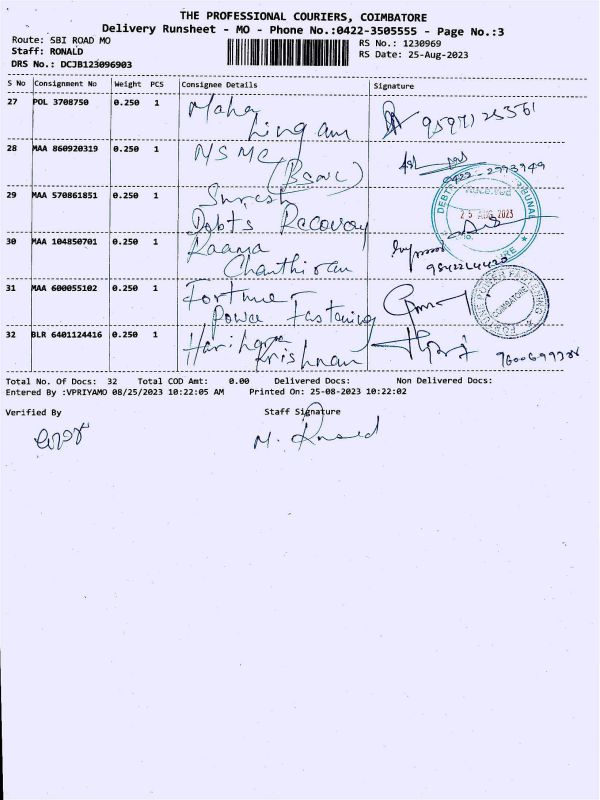 THE PROFESSIONAL COURIERS, COIMBATORE
Delivery Runsheet - MO - Phone No.:0422-3505555 - Page No.:3
Route: SBI ROAD MO
RS No.: 1230969
Staff: RONALD
RS Date: 25-Aug-2023
DRS No.: DCJB123096903
S No Consignment No Weight PCS Consignee Details Signature
27 POL 3708750 0.250 1 Maha
Lingam
28 MAA 860920319 0.250 1 MSMC
(BSNL)
0422-2993949
29 MAA 570861851 0.250 1 Suresh
Debts Recovery
25 AUG 2023
30 MAA 104850701 0.250 1 Raama
Chanthiran
31 MAA 600055102 0.250 1 Fortune
Power Fastening
COIMBATORE
32 BLR 6401124416 0.250 1 Harihara
Krishnan
Total No. Of Docs: 32 Total COD Amt: 0.00 Delivered Docs: Non Delivered Docs:
Entered By :VPRIYAMO 08/25/2023 10:22:05 AM Printed On: 25-08-2023 10:22:02
Verified By Staff Signature
M. Ronald